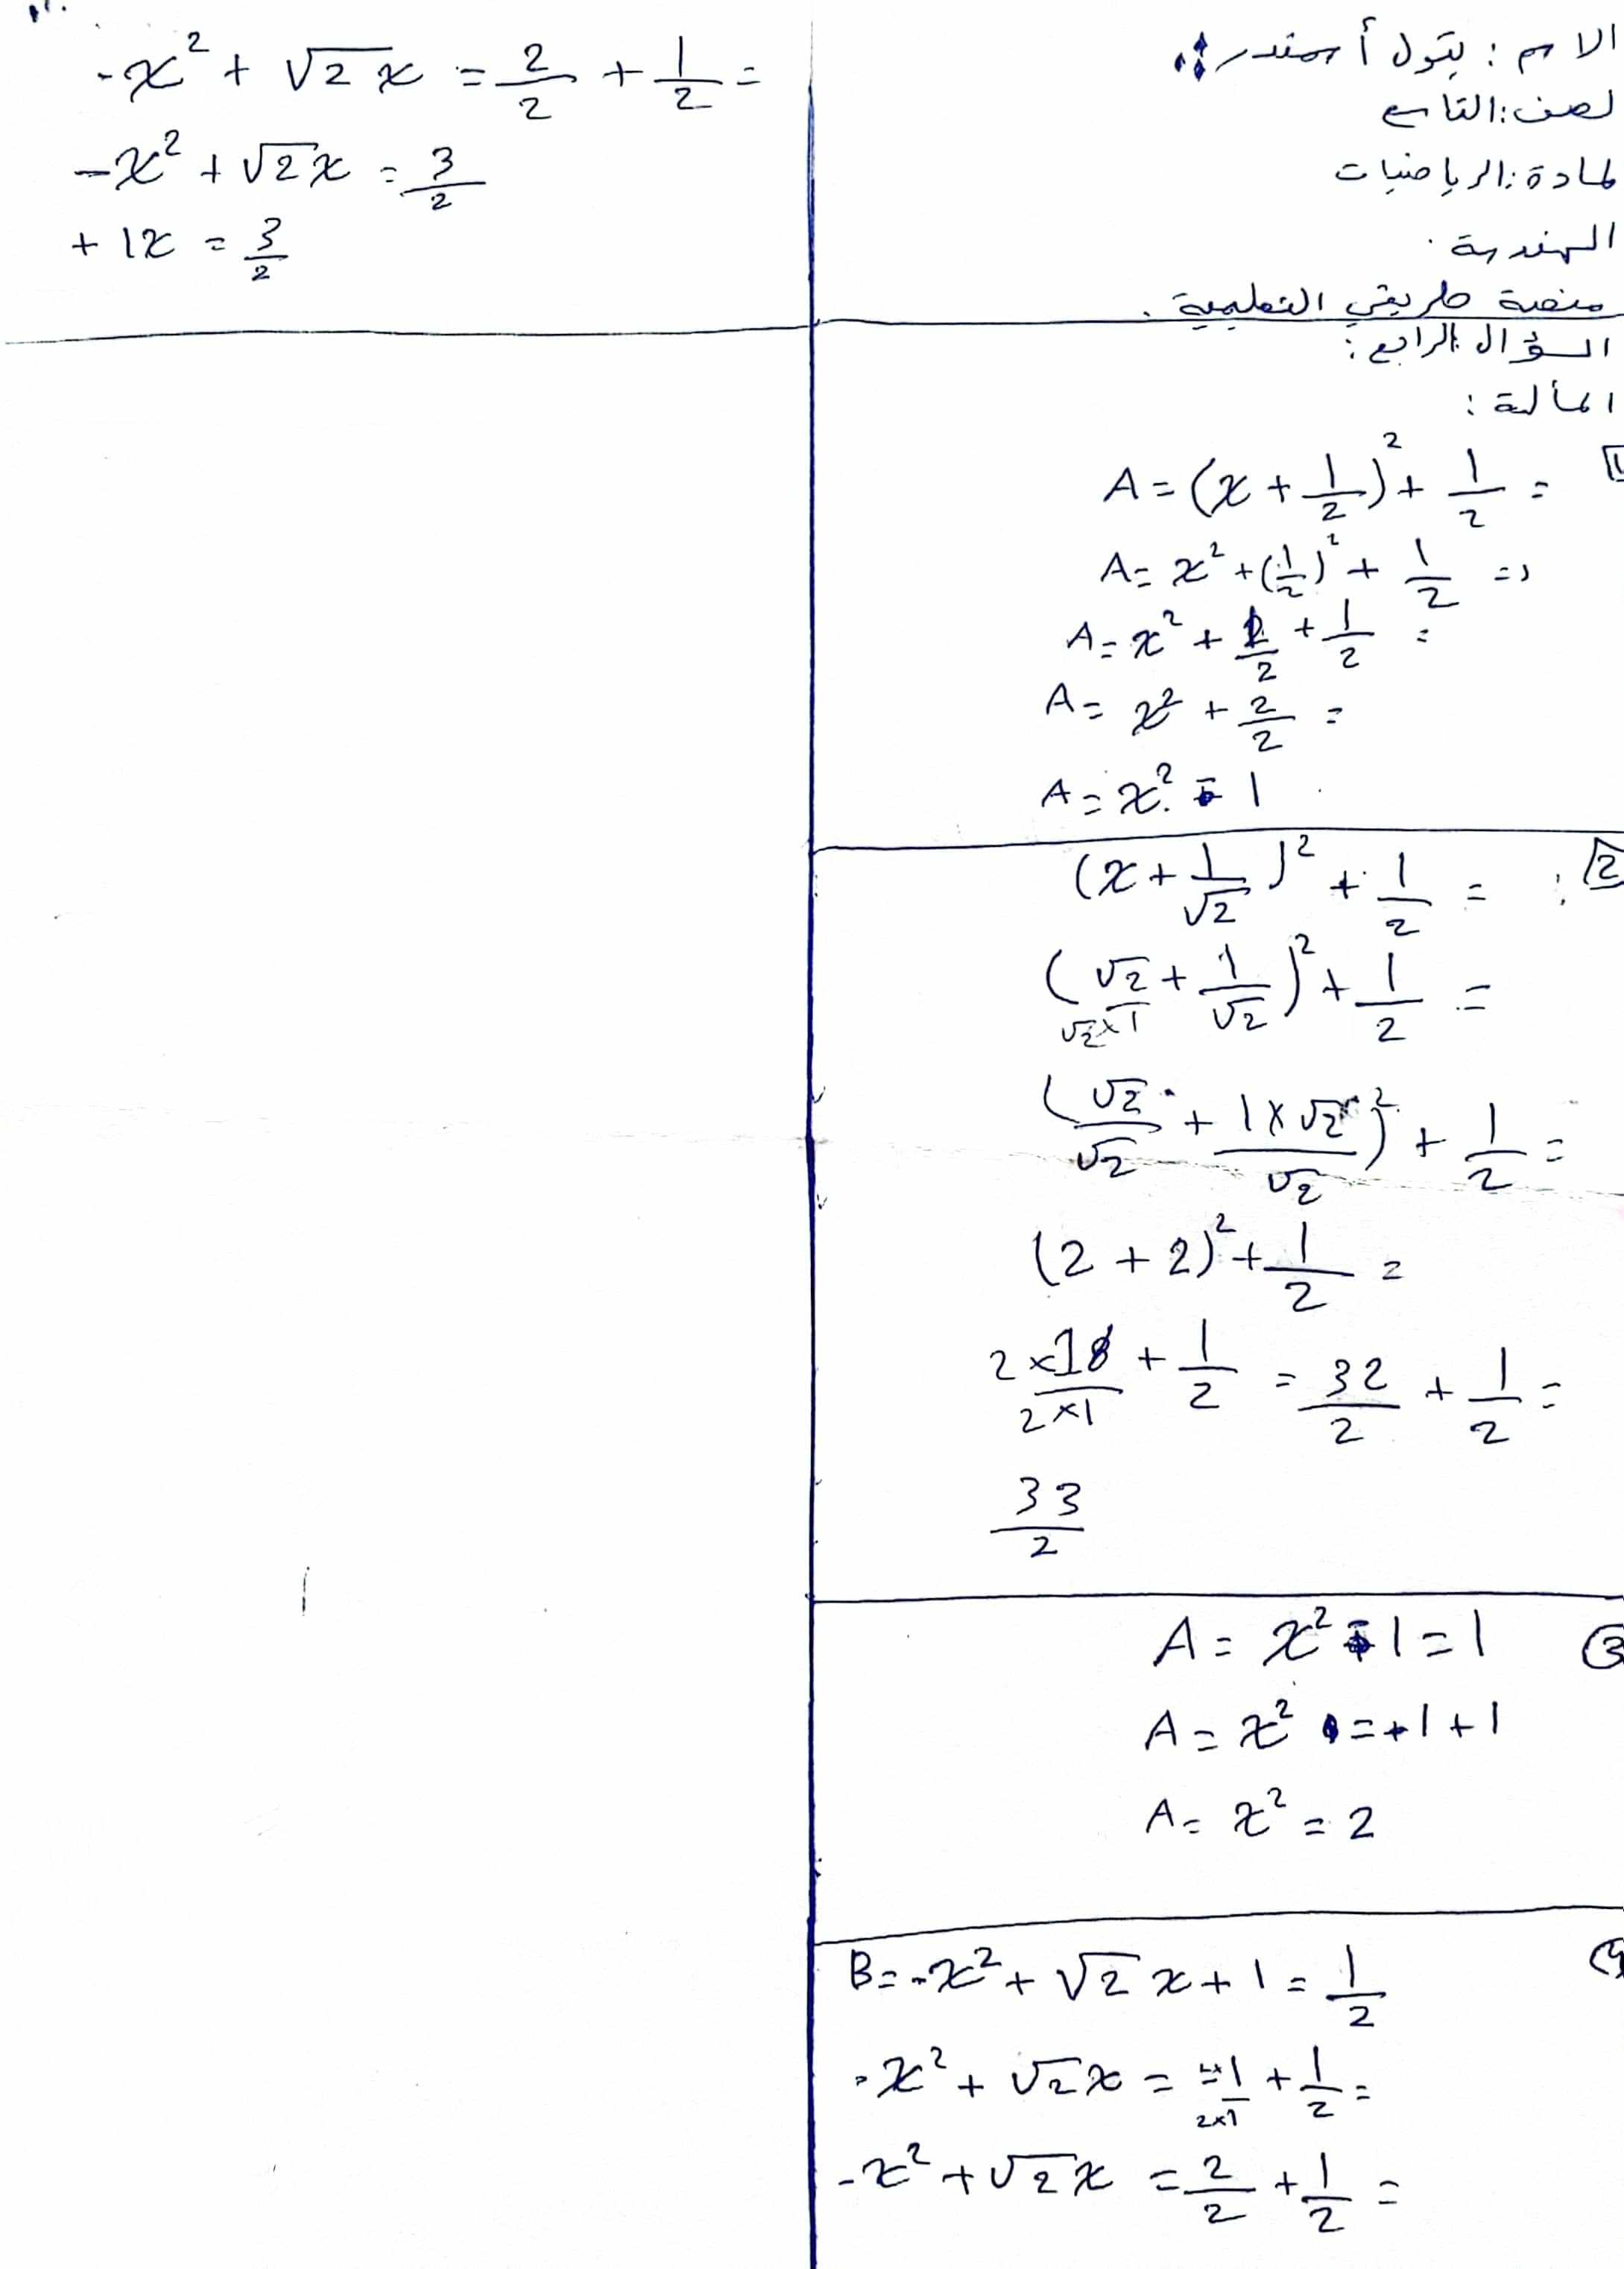 الاسم : بتول أ سمندر
لصف: التاسع
لمادة: الرياضيات
الهندسة .
منصة طريقي التعليمية .
السؤال الرابع :
المسألة :
A = (x + 1/2)² + 1/2 =
A = x² + (1/2)² + 1/2 =
A = x² + 1/2 + 1/2 =
A = x² + 2/2 =
A = x² 1
2 :
(x + 1/√2)² + 1/2 =
(√2/1 + 1/√2)² + 1/2 =
√2×
(√2/√2 + 1×√2/√2)² + 1/2 =
(2 + 2)² + 1/2 =
2×1/2×1 + 1/2 = 32/2 + 1/2 =
33/2
3
A = x² 1 = 1
A = x² = +1 + 1
A = x² = 2
B = -x² + √2 x + 1 = 1/2
-x² + √2 x = 1/2×1 + 1/2 =
-x² + √2 x = 2/2 + 1/2 =
-x² + √2 x = 2/2 + 1/2 =
-x² + √2 x = 3/2
+ 1x = 3/2